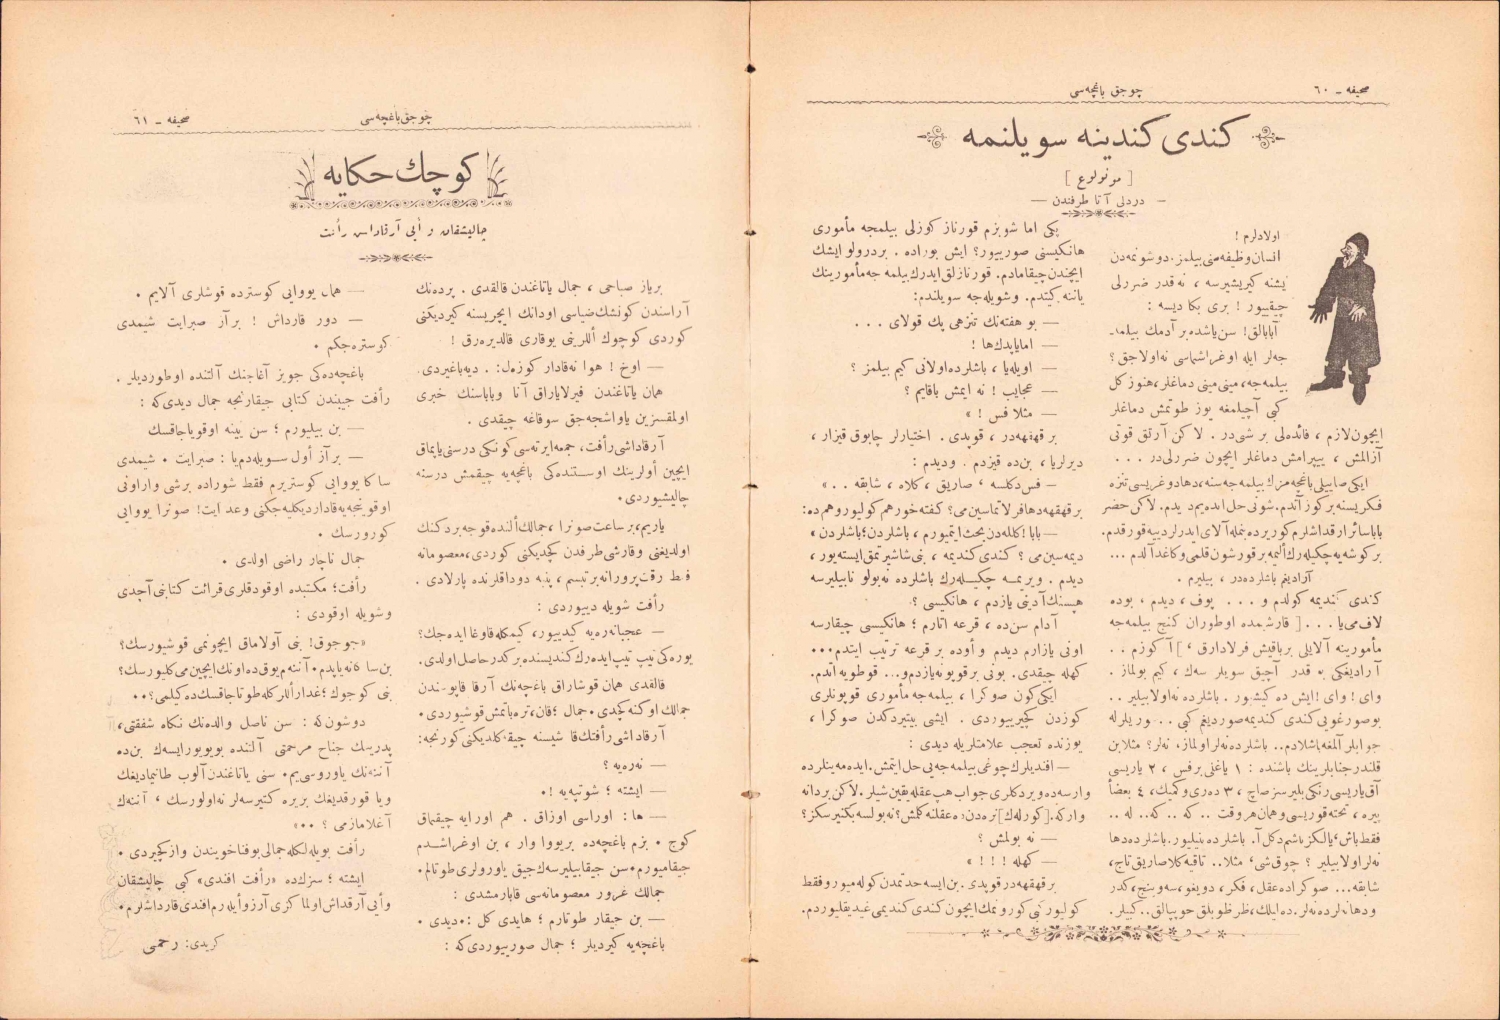 صحیفه ـ ٦٠
چوجق باغچه‌سی
كندی كندینه سویلنمه
[ مونولوغ ]
— دردلی آتا طرفندن —
اولادلرم !
انسان وظیفه‌سنی بیلمز، دوشونمه‌دن
ایشنه كیریشیرسه ، نه‌قدر ضررلی
چیقییور ! بری بكا دیسه :
آبابالق! سن یاشده بر آدمك بیلمه‌
جه‌لر ایله اوغراشماسی نه‌اولاجق ؟
بیلمه‌جه، مینی مینی دماغلر، هنوز كل
كبی آچیلمغه یوز طوتمش دماغلر
ایچون لازم ، فائده‌لی بر شی‌در . لا كن آرتق قوتی
آزالمش ، یپرامش دماغلر ایچون ضررلی‌در . . .
فكریسنه بر كوز آتدم. شونی حل ایده‌یم دیدم. لاكن حضر
بر كوشه‌یه چكیله‌رك ألیمه بر قورشون قلمی و كاغد آلدم ...
آرادیغم باشلرده‌در ، بیلیرم .
كندی كندیمه كولدم و . . . پوف ، دیدم ، بوده
لاف می یا . . . [ قارشمده اوطوران كنج بیلمه‌جه
مأمورینه آلایلی بر باقیش فرلادارق ، ] آ كوزم . .
آرادیغكی نه قدر آچیق سویلر سه‌ك ، كیم بولماز .
وای ! وای ! ایش ده كیشور . باشلرده نه‌اولا بیلیر . .
بو صورغویی كندی كندیمه صوردیغم كبی . . ویریلرله
جوابلر آلمغه باشلادم.. باشلرده نه‌لر اولماز، نه‌لر؟ مثلا بن
قلندر جنابلرینك باشنده : ١ یاغلی بر فس ، ٢ یاریسی
آق یاریسی رنكی بلیرسز صاچ ، ٣ ده‌ری و كمیك، ٤ بعضاً
بیره ، تخته قوریسی و همان هر وقت .. كه .. كه.. له ..
نه‌لر اولا بیلیر ؟ چوق شی، مثلا.. تاقیه كلاه صاریق تاج،
شابقه... صوكراده عقل، فكر ، دویغو، سه‌ونج، كدر
یكی اما شو بزم قورناز كوزلی بیلمجه مأموری
هانكیسنی صورییور؟ ایش بوراده . بر درولو ایشك
ایچندن چیقامادم. قورنازلق ایدرك بیلمه جه مأمورینك
یاننه كیتدم. وشویله‌جه سویلندم:
— بو هفته‌نك تنزهی پك قولای . . .
— اما یاپدك ها !
— اویله‌یا ، باشلرده اولانی كیم بیلمز ؟
— عجایب ! نه ایمش باقایم ؟
— مثلا فس ! »
بر قهقهه‌در ، قوپدی . اختیارلر چابوق قیزار ،
دیرلریا ، بن‌ده قیزدم . ودیدم :
— فس دكلسه ، صاریق ، كلاه ، شابقه . . »
بر قهقهه دها فرلاتماسین می؟ كفته خورهم كولیور وهم ده:
— بابا ! كلله‌دن بحث ایتمیورم ، باشلردن ؛ باشلردن ،
دیمه‌سین می ؟ كندی كندیمه ، بنی شاشیرتمق ایسته‌یور ،
دیدم . ویریمه چكیله‌رك باشلرده نه‌بولو نابیلیرسه
هپسنك آدینی یازدم ، هانكیسی ؟
آدام سن‌ده ، قرعه آتارم ؛ هانكیسی چیقارسه
اونی یازارم دیدم و أوده بر قرعه ترتیب ایتدم...
كهله چیقدی. بونی بر قوپونه یازدم و... قوطویه آتدم.
ایكی كون صوكرا ، بیلمه‌جه مأموری قوپونلری
كوزدن كچیرییوردی . ایشی بیتیردكدن صوكرا ،
یوزنده تعجب علامتلریله دیدی :
— افندیلرك چوغی بیلمه‌جه‌یی حل ایتمش. ایده‌مه‌ینلرده
وارسه‌ده ویردكلری جواب هپ عقله یقین شیلر. لاكن بر دانه
— نه بولمش ؟
— كهله ! ! ! »
بر قهقهه‌در قوپدی. بن ایسه حدتمدن كوله میور و فقط
كولیور كبی كورونمك ایچون كندی كندیمی غیدیقلیوردم.
صحیفه ـ ٦١
چوجق باغچه‌سی
كوچك حكایه
چالیشقان و أیی آرقاداش رأفت
بر یاز صباحی ، جمال یاتاغندن قالقدی . پرده‌نك
آراسندن كونشك ضیاسی اودانك ایچریسنه كیردیكنی
كوردی كوچوك أللرینی یوقاری قالدیره‌رق !
— اوخ ! هوا نه‌قادار كوزل: . دیه باغیردی.
همان یاتاغندن فیرلایاراق آنا وباباسنك خبری
اولمقسزین یاواشجه‌جق سوقاغه چیقدی .
آرقاداشی رأفت، جمعه ایرته‌سی كونكی درسنی یاپماق
ایچین أولرینك اوستنده‌كی باغچه‌یه چیقمش درسنه
چالیشیوردی.
یاریم، بر ساعت صوكرا ، جمالك ألنده قوجه بر دكنك
اولدیغنی وقارشی طرفدن كچدیكنی كوردی، معصومانه
فقط رقت پرورانه بر تبسم ، پنبه دوداقلرنده پارلادی .
رأفت شویله دییوردی :
— عجبا نه‌ره‌یه كیدییور، كیمكله قاوغا ایده‌جك؟
یوره‌كی تیپ تیپ ایده‌رك كندیسنده بر كدر حاصل اولدی.
قالقدی همان قوشاراق باغچه‌نك آرقا قاپوسندن
جمالك او كنه كچدی. جمال ؛ قان، تره باتمش قوشیوردی.
آرقاداشی رأفتك قارشیسنه چیقه كلدیكنی كورنجه:
— نه‌ره‌یه ؟
— ایشته ؛ شوتپه‌یه !.
— ها : اوراسی اوزاق . هم اورایه چیقماق
كوج . بزم باغچه‌ده بر یووا وار ، بن اوغراشدم
چیقامیورم. سن چیقابیلیرسه‌ك چیق یاورولری طوتالم.
جمالك غرور معصومانه‌سی قابارمشدی :
— بن چیقار طوتارم ؛ هایدی كل :. دیدی .
باغچه‌یه كیردیلر ؛ جمال صورییوردی كه :
— همان یووایی كوسترده قوشلری آلایم .
— دور قارداش ! بر آز صبر ایت شیمدی
كوستره‌جكم .
باغچه‌ده‌كی جویز آغاجنك آلتنده اوطوردیلر .
رأفت جیبندن كتابی چیقارنجه جمال دیدی كه :
— بن بیلیورم ؛ سن یینه اوقویاجاقسك
— بر آز أول سویله‌دم یا : صبر ایت . شیمدی
سا كا یووایی كوستریرم فقط شوراده برشی وار اونی
اوقوینجه‌یه قادار دیكلیه‌جكنی وعد ایت! صوكرا یووایی
كورورسك .
جمال ناچار راضی اولدی .
رأفت؛ مكتبده اوقودقلری قرائت كتابنی آچدی
وشویله اوقودی :
«چوجوق! بنی آولاماق ایچونمی قوشیورسك؟
بن سا كا نه یاپدم. آننه‌م یوق ده اونك ایچین می كلیورسك؟
بنی كوچوك ؛ غدار أللر كله طوتاجاقسك ده كیلمی؟..
دوشون كه : سن ناصل والده‌نك نكاه شفقتی ،
پدریك جناح مرحمتی آلتنده بویویورایسه‌ك بن‌ده
آننه‌نك یاوروسی‌یم. سنی یاتاغندن آلوب طانیمادیغك
ویا قورقدیغك بر یره كتیرسه‌لر نه‌اولورسك ، آننه‌ك
آغلامازمی ؟ ..»
رأفت بویله‌لكله جمالی بو فنا خویندن واز كچیردی .
ایشته ؛ سزك‌ده «رأفت افندی» كبی چالیشقان
وأیی آرقداش اولما كزی آرزو ایله‌رم افندی قارداشلرم.
كریدی: رحمی